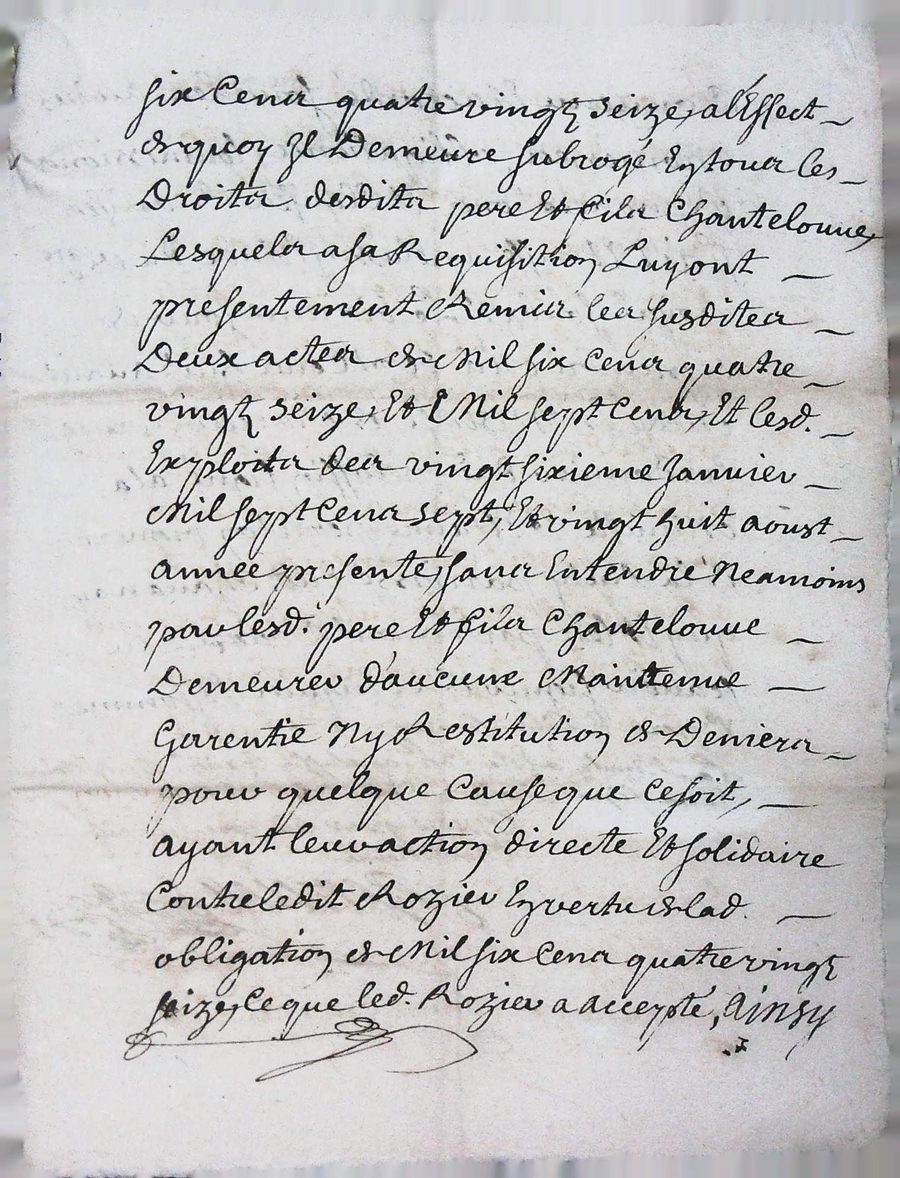 six Cens quatre vingt seize, a l'Effect
de quoy Il Demeure subrogé En tous les
Droits desdits pere Et fils Chantelouve,
Lesquels a sa Requisition Luy ont
presentement Remis les susdites
Deux actes de Mil six Cens quatre
vingt seize, Et Mil sept Cens, Et lesd.
Exploits des vingt sixieme Janvier
Mil sept Cens sept, Et vingt huit aoust
année presente, sans Entendre Neamoins
par lesd. pere Et fils Chantelouve
Demeurer d'aucune Maintenue
Garentie Ny Restitution de Deniers
pour quelque Cause que ce soit,
ayant leur action directe Et solidaire
Contre ledit Rozier En vertu de lad.
obligation de Mil six Cens quatre vingt
seize, Ce que led. Rozier a accepté, Ainsy